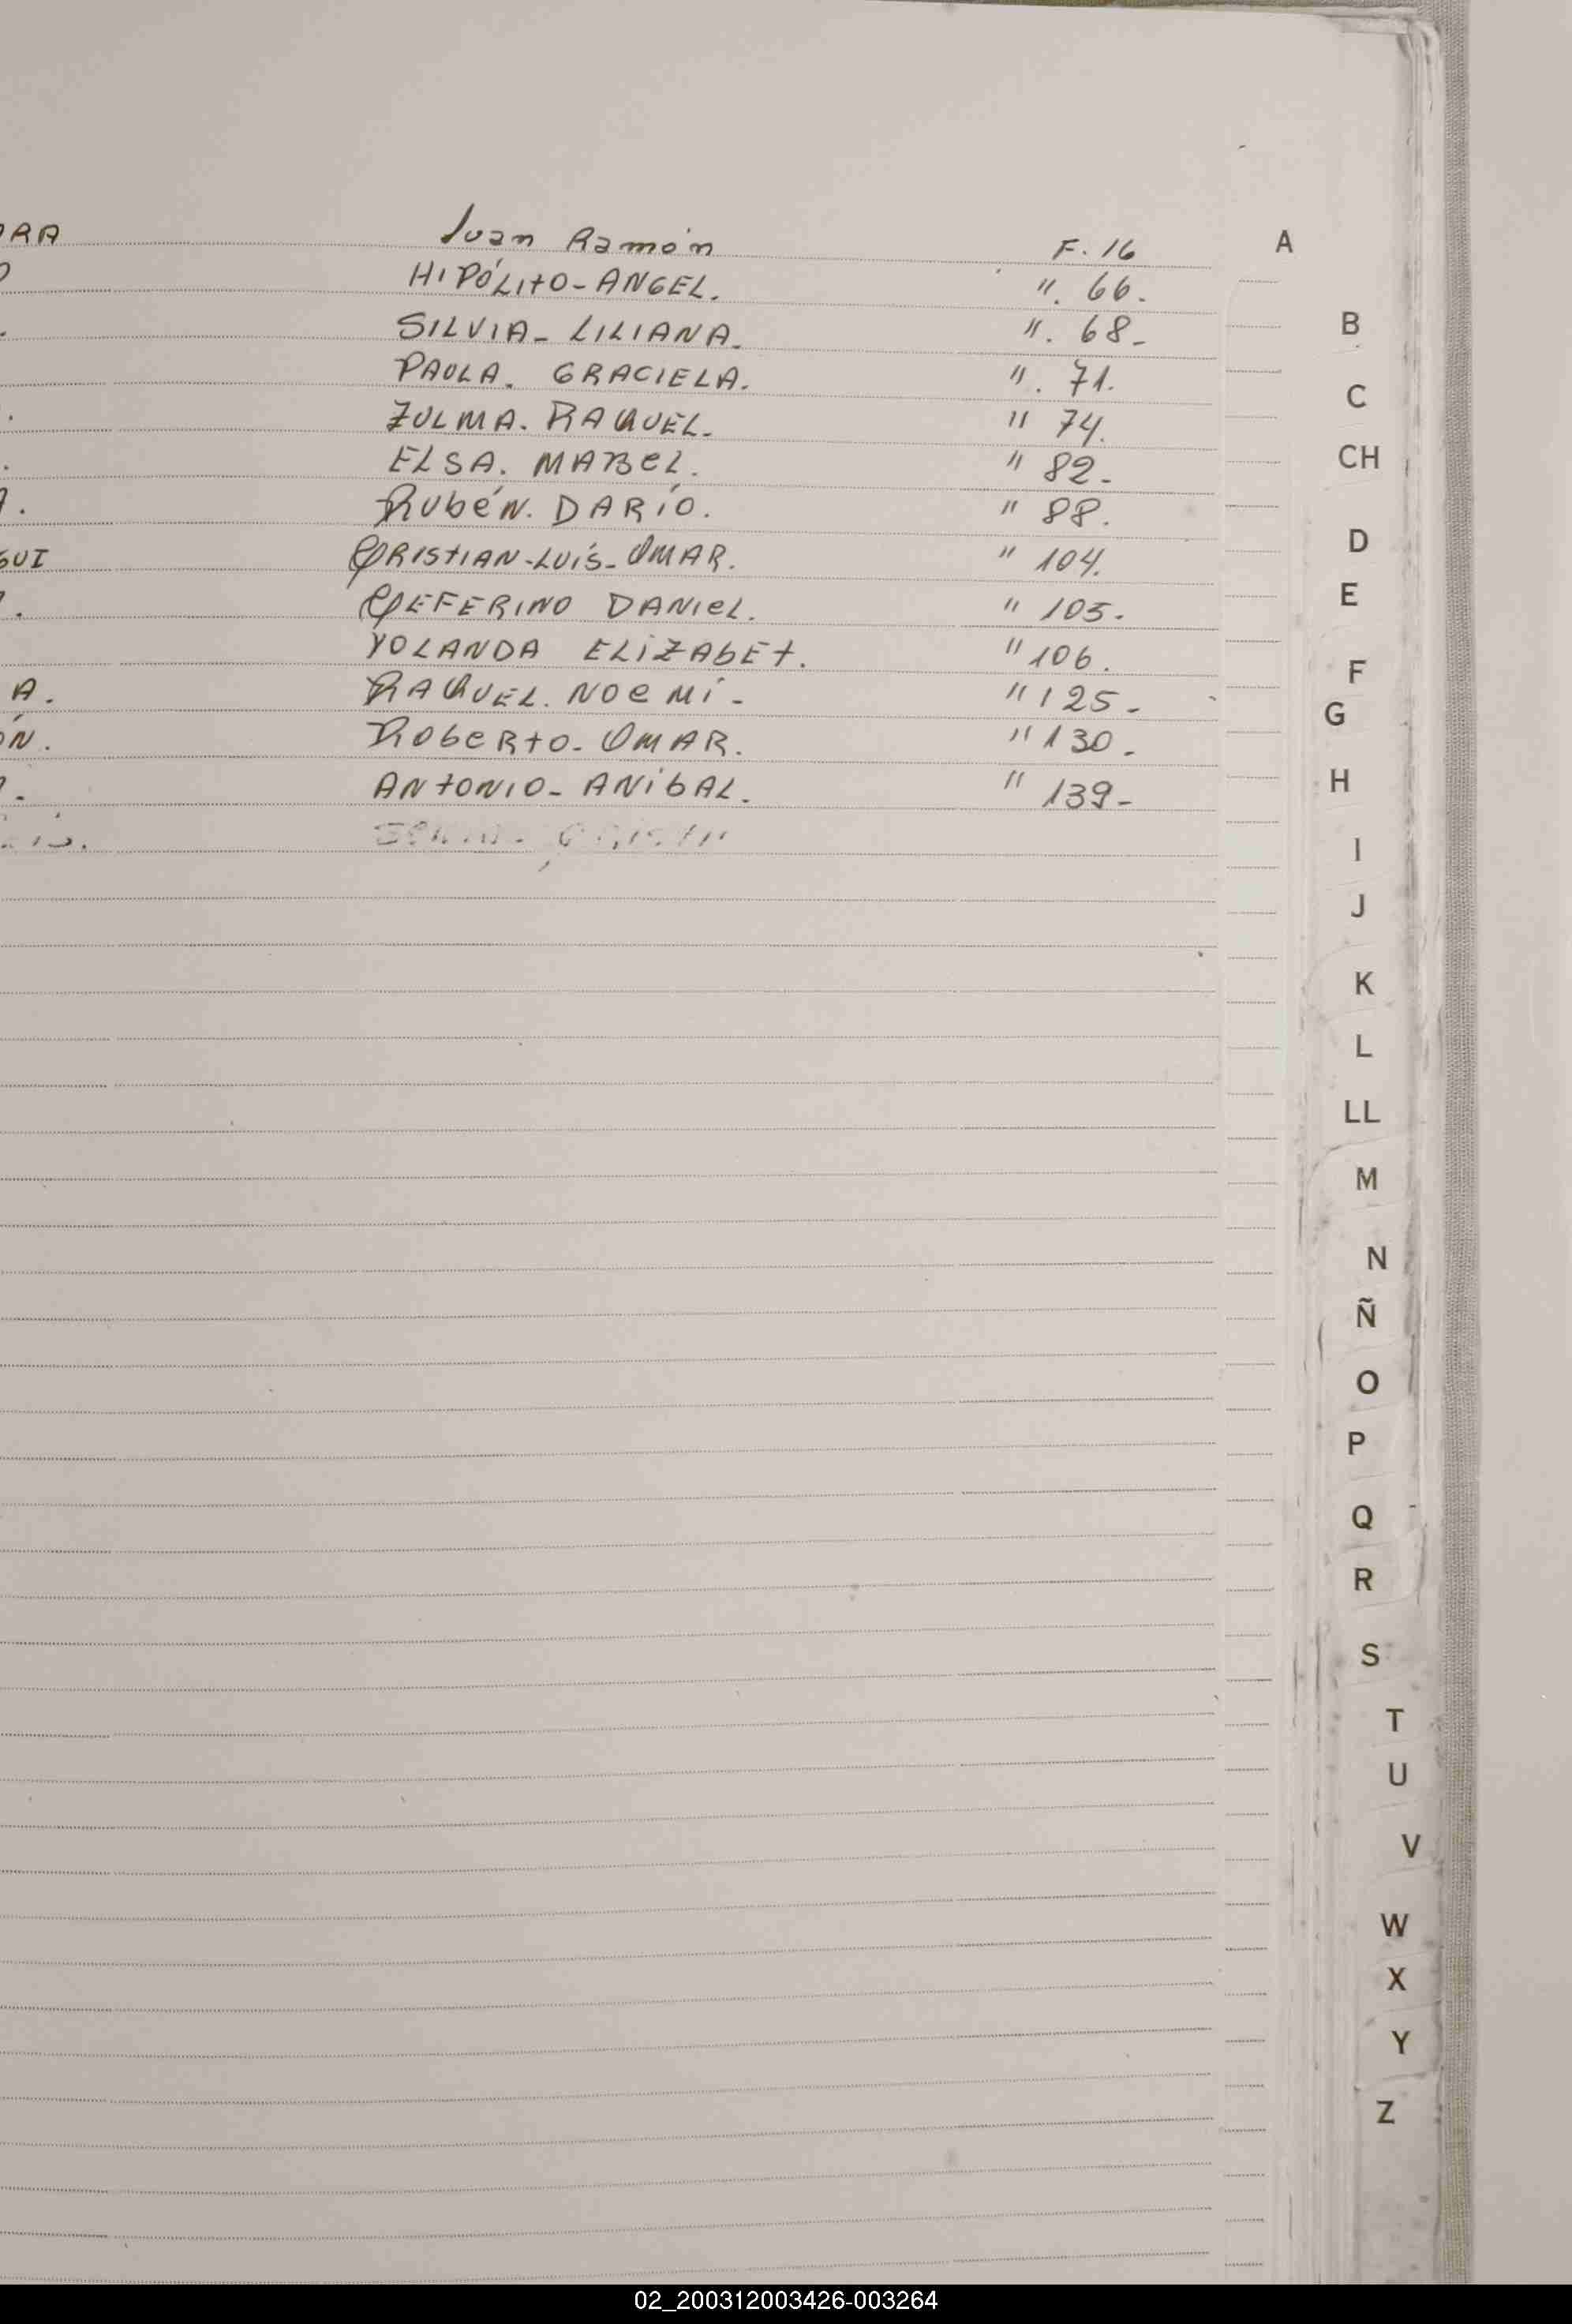 ORA Juan Ramón F. 16 A
HIPÓLITO-ANGEL. ". 66.
SILVIA- LILIANA. ". 68- B
PAULA. GRACIELA. ". 71.
C
ZULMA. RAQUEL. " 74.
ELSA. MABEL. " 82- CH
RUBÉN. DARÍO. " 88.
GUI CRISTIAN-LUÍS-OMAR. " 104. D
CEFERINO DANIEL. " 105. E
YOLANDA ELIZABET. " 106. F
A. RAQUEL. NOEMÍ- " 125- G
ÓN. ROBERTO- OMAR. " 130.
ANTONIO- ANÍBAL. " 139- H
I
J
K
L
LL
M
N
Ñ
O
P
Q
R
S
T
U
V
W
X
Y
Z
02_200312003426-003264